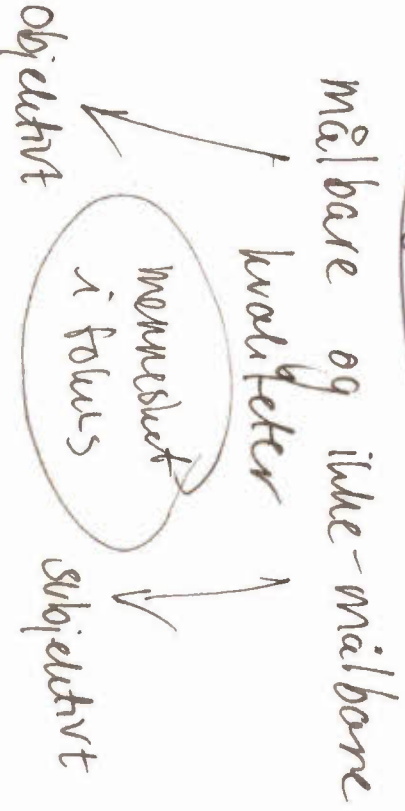 målbare og ikke-målbare
kvaliteter
mennesket
i fokus
objektivt
subjektivt